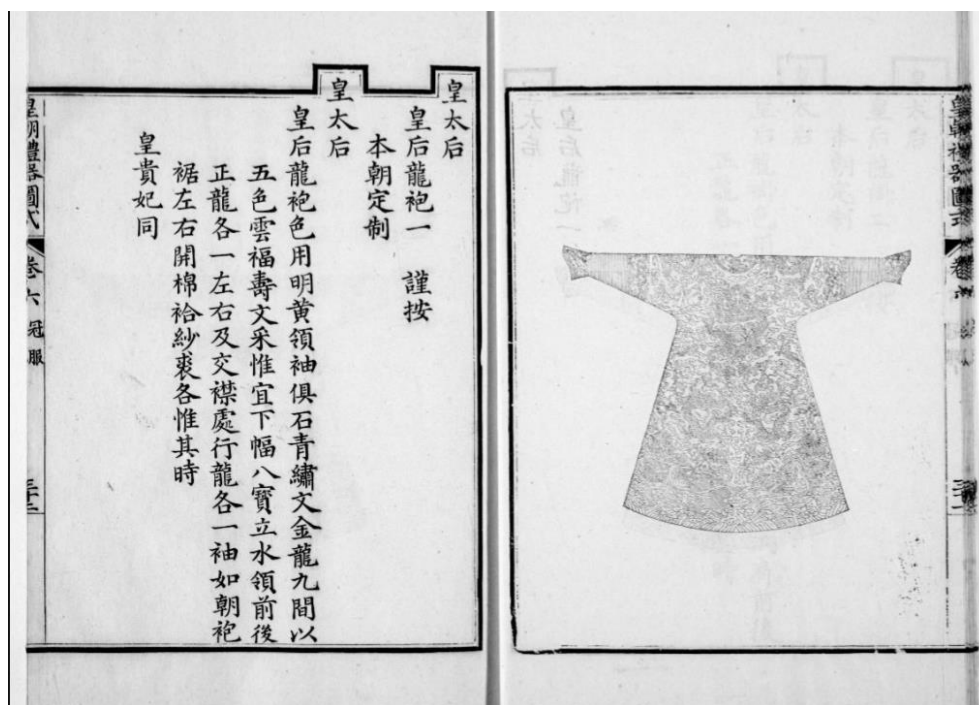 皇太后
皇后龍袍一 謹按
本朝定制
皇太后
皇后龍袍色用明黄領袖俱石青繡文金龍九間以
五色雲福壽文采惟宜下幅八寶立水領前後
正龍各一左右及交襟處行龍各一袖如朝袍
裾左右開棉袷紗裘各惟其時
皇貴妃同
皇朝禮器圖式 卷六 冠服